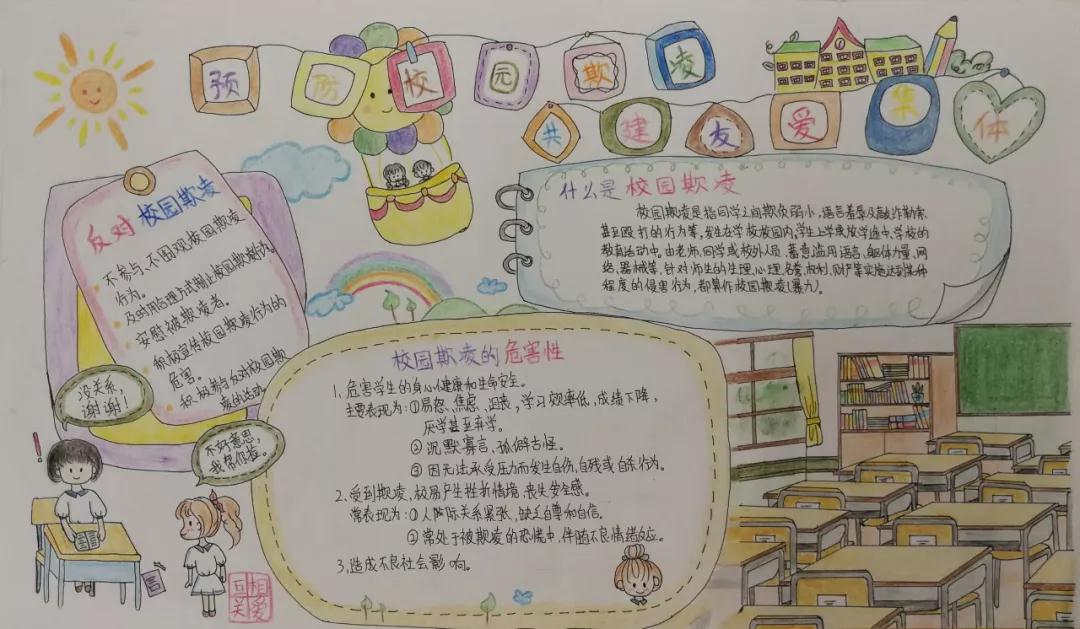 预防校园欺凌
共建友爱集体
反对校园欺凌
不参与、不围观校园欺凌
行为。
及时用合理方式制止校园欺凌行为。
安慰被欺凌者。
积极宣传校园欺凌行为的
危害。
积极参与反对校园欺
凌的活动
没关系,
谢谢!
不好意思,
我帮你捡。
互相
关爱
什么是校园欺凌
校园欺凌是指同学之间欺负弱小,语言羞辱及敲诈勒索
甚至殴打的行为等,发生在学校校园内,学生上学或放学途中,学校的
教育活动中。由老师,同学或校外人员,蓄意滥用语言、躯体力量、网
络、器械等,针对师生的生理、心理、名誉、权利、财产等实施达到某种
程度的侵害行为,都算作校园欺凌(暴力)。
校园欺凌的危害性
1、危害学生的身心健康和生命安全。
主要表现为:①易怒、焦虑、沮丧,学习效率低,成绩下降,
厌学甚至弃学。
② 沉默寡言,孤僻古怪。
③ 因无法承受压力而发生自伤,自残或自杀行为。
2、受到欺凌,极易产生挫折情境,丧失安全感。
常表现为:①人际关系紧张,缺乏自尊和自信。
② 常处于被欺凌的恐慌中,伴随不良情绪反应。
3、造成不良社会影响。